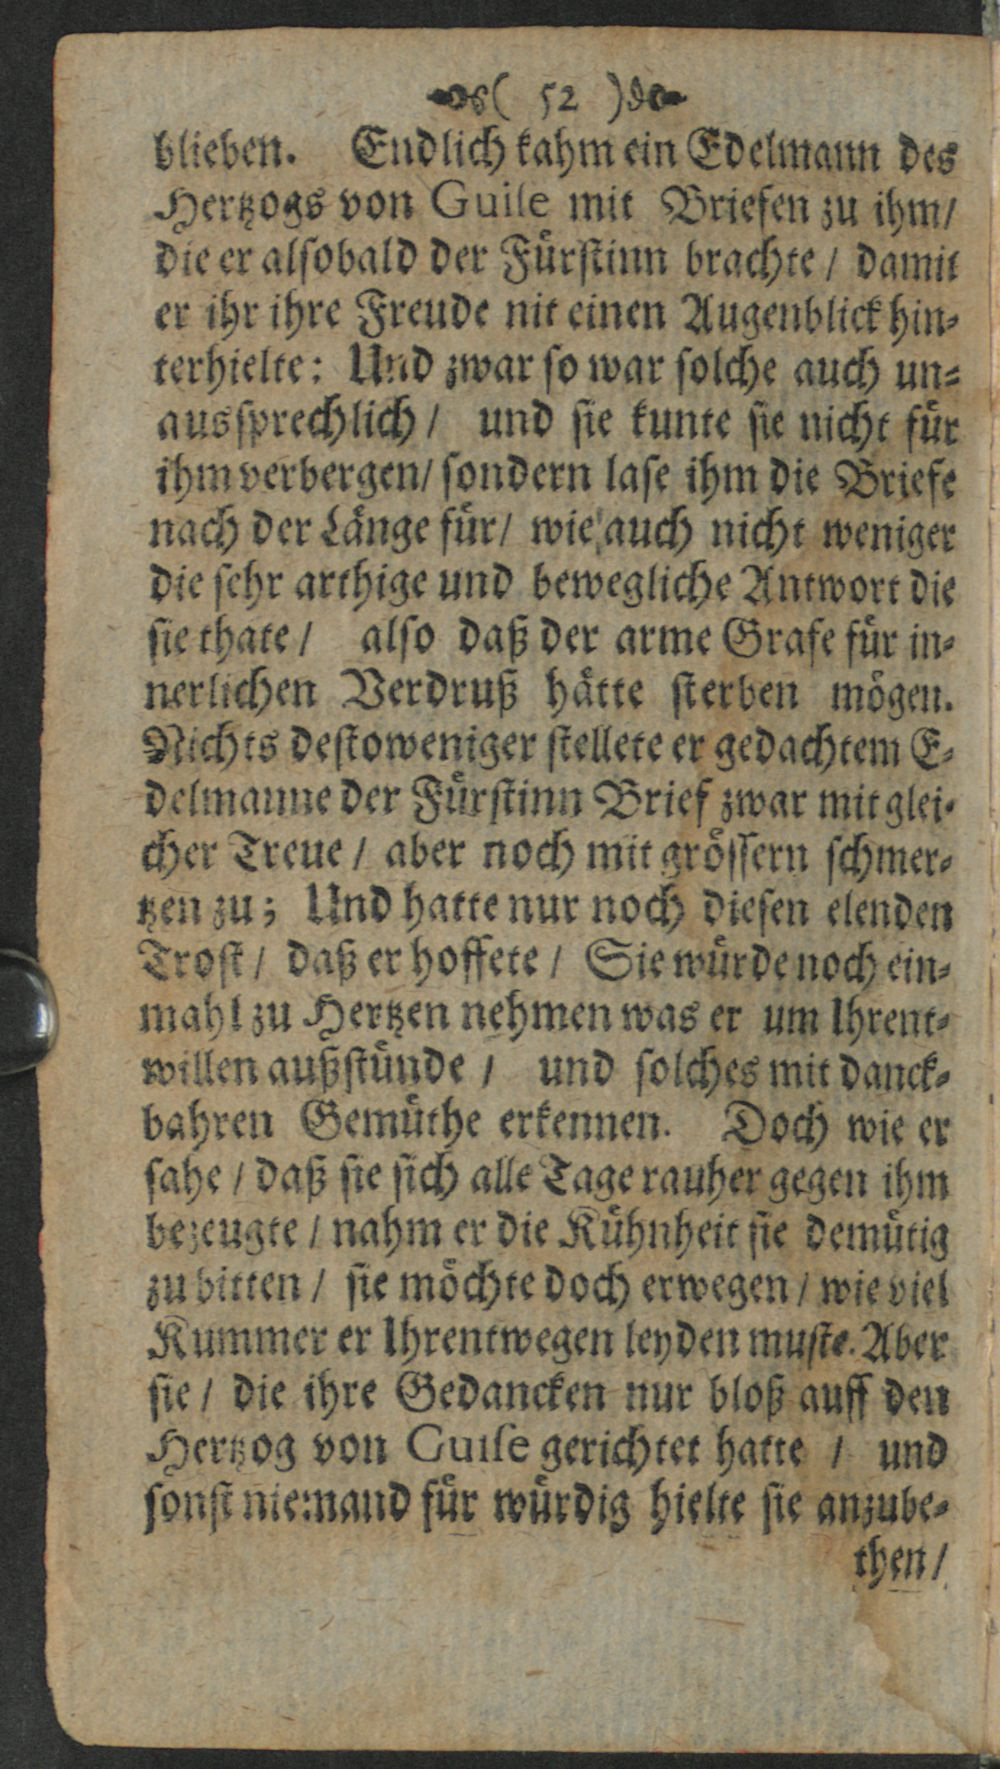 ( 52 )
blieben. Endlich kahm ein Edelmann des
Hertzogs von Guiſe mit Briefen zu ihm/
die er alſobald der Fürſtinn brachte / damit
er ihr ihre Freude nit einen Augenblick hin-
terhielte: Und zwar ſo war ſolche auch un-
ausſprechlich / und ſie kunte ſie nicht für
ihm verbergen/ ſondern laſe ihm die Briefe
nach der Länge für/ wie auch nicht weniger
die ſehr arthige und bewegliche Antwort die
ſie thate / alſo daß der arme Grafe für in-
nerlichen Verdruß hätte ſterben mögen.
Nichts deſtoweniger ſtellete er gedachtem E-
delmanne der Fürſtinn Brief zwar mit glei-
cher Treue / aber noch mit gröſſern ſchmer-
tzen zu; Und hatte nur noch dieſen elenden
Troſt / daß er hoffete / Sie würde noch ein-
mahl zu Hertzen nehmen was er um Ihrent-
willen außſtünde / und ſolches mit danck-
bahren Gemüthe erkennen. Doch wie er
ſahe / daß ſie ſich alle Tage rauher gegen ihm
bezeugte / nahm er die Kühnheit ſie demütig
zu bitten / ſie möchte doch erwegen / wie viel
Kummer er Ihrentwegen leyden muſte. Aber
ſie / die ihre Gedancken nur bloß auff den
Hertzog von Guiſe gerichtet hatte / und
ſonſt niemand für würdig hielte ſie anzube-
then /